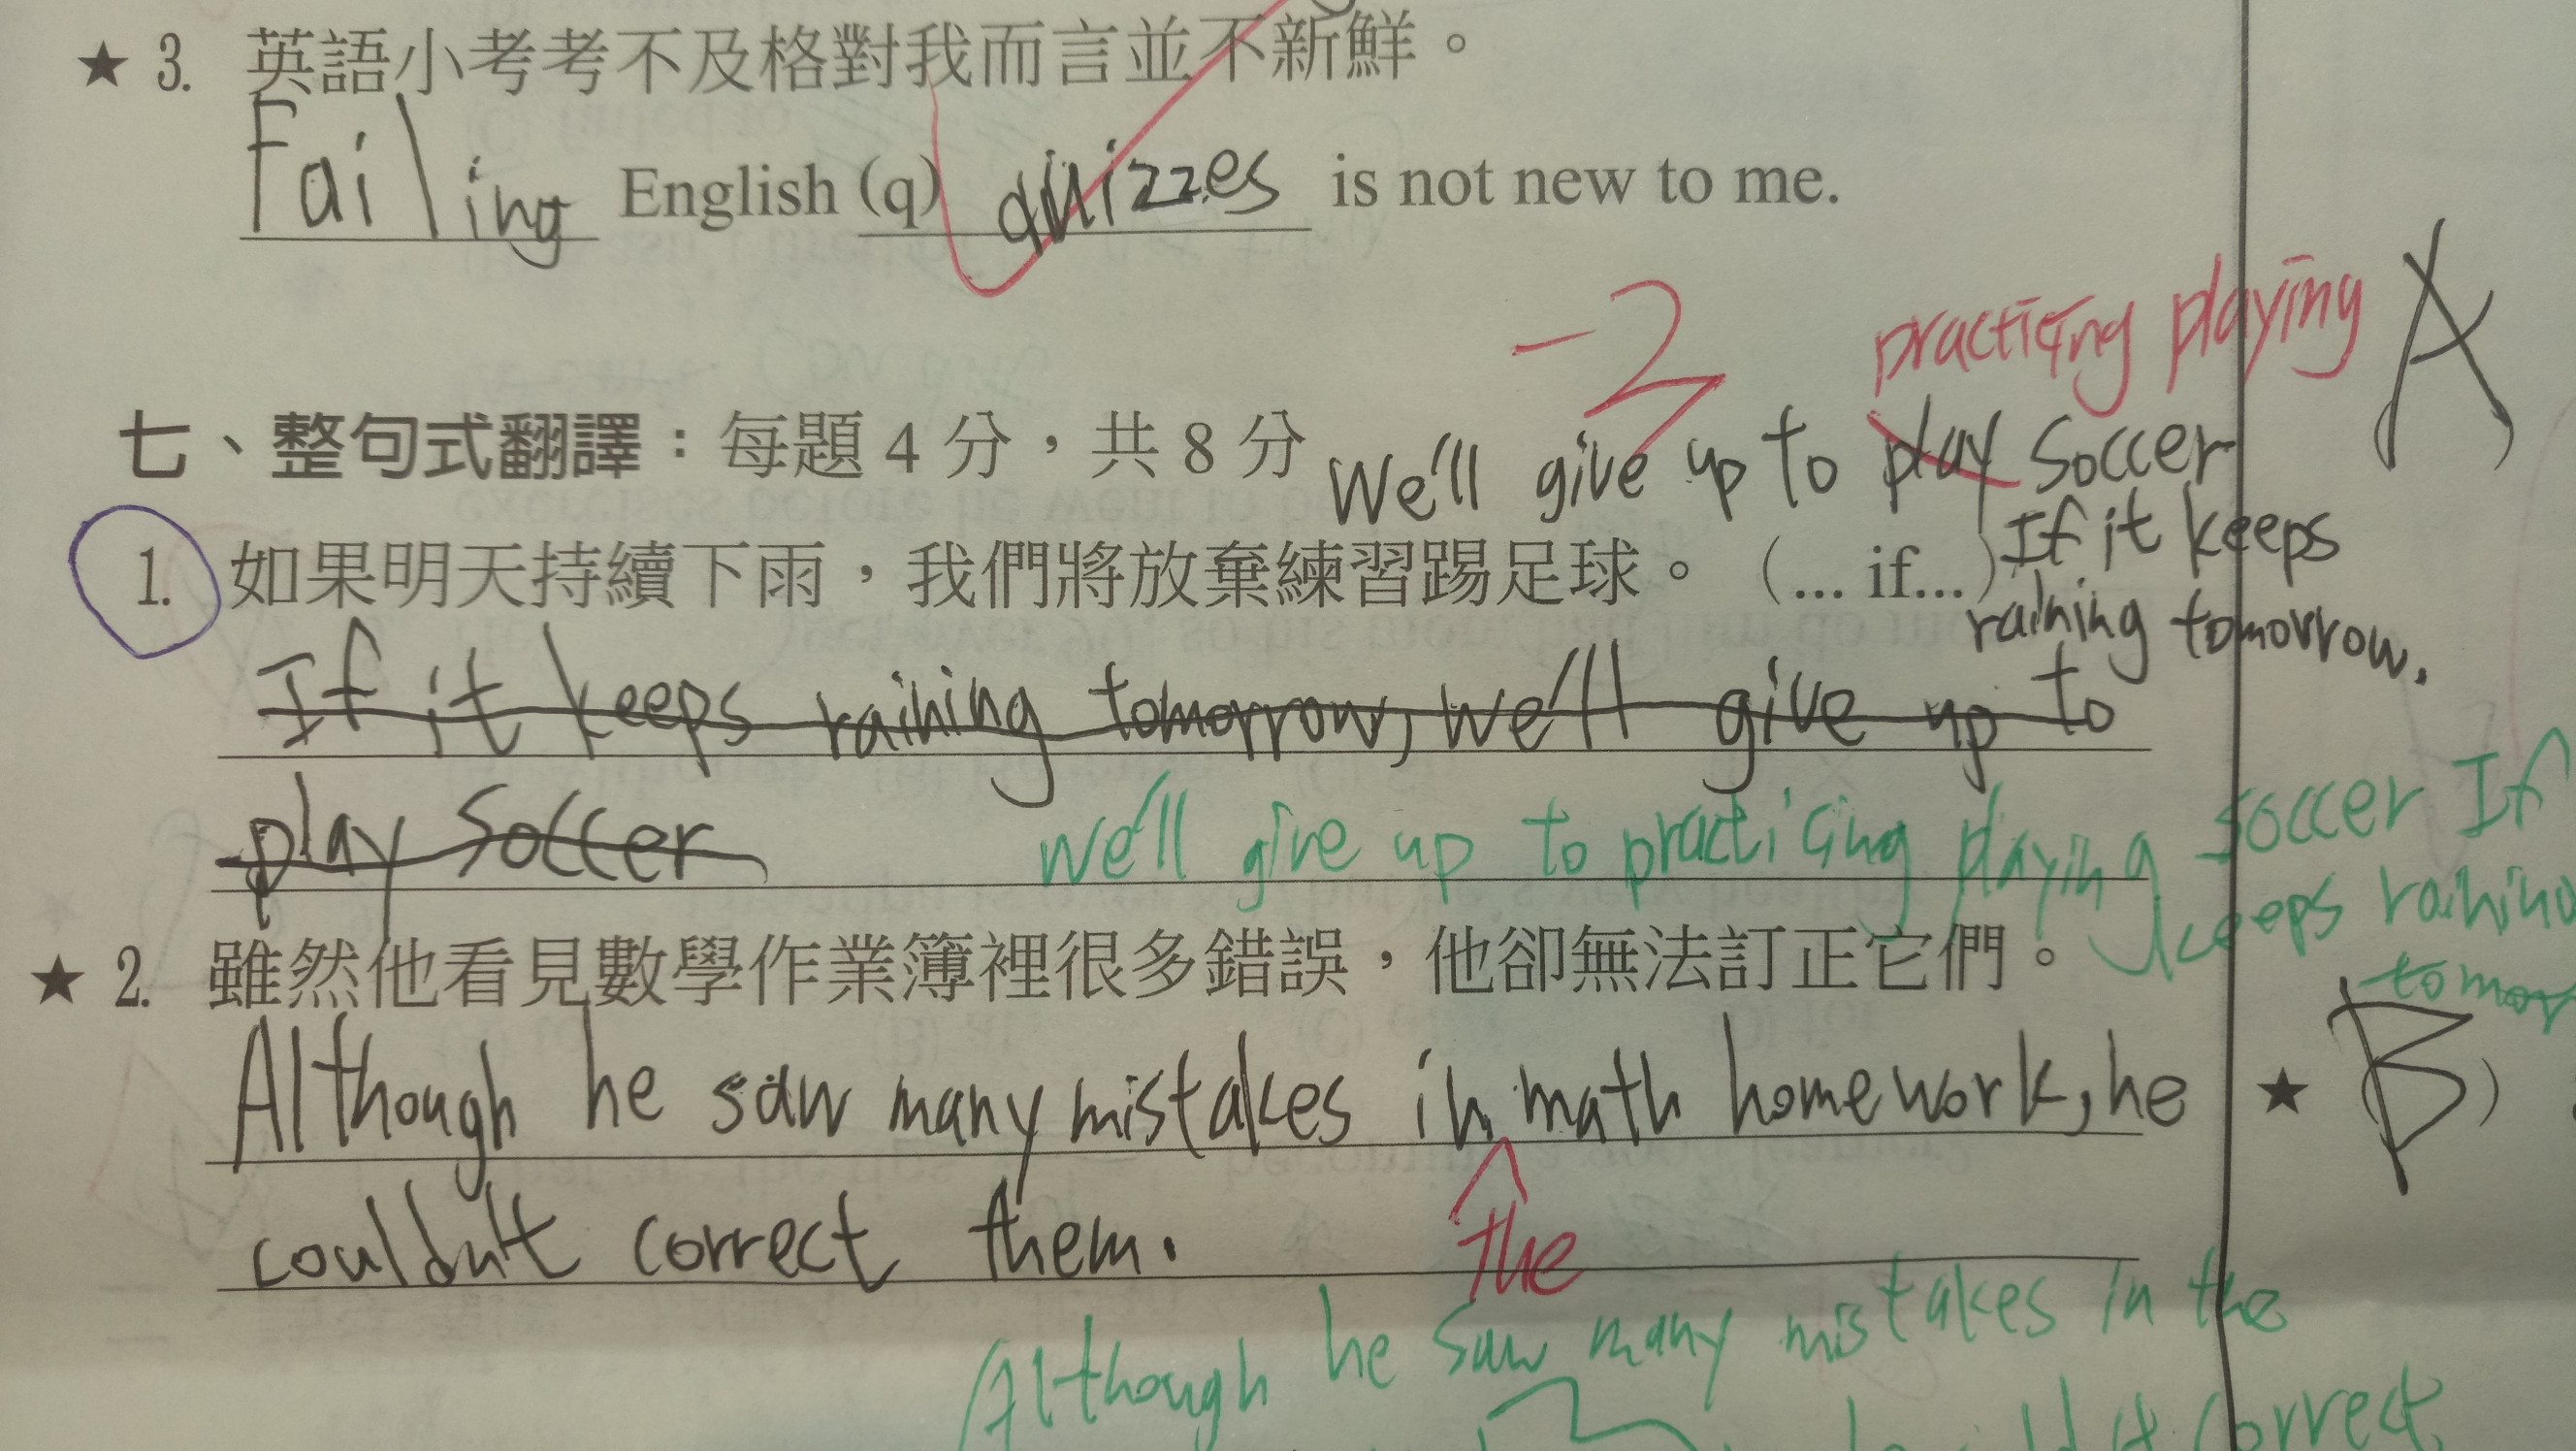 ★ 3. 英語小考考不及格對我而言並不新鮮。
Failing English (q) quizzes is not new to me.
-2 practicing playing A
七、整句式翻譯：每題 4 分，共 8 分 We'll give up to play soccer
1. 如果明天持續下雨，我們將放棄練習踢足球。（... if...) If it keeps
raining tomorrow.
If it keeps raining tomorrow, we'll give up to
play soccer
we'll give up to practicing playing soccer If
keeps raining
★ 2. 雖然他看見數學作業簿裡很多錯誤，他卻無法訂正它們。
Although he saw many mistakes in math homework, he ★ B
couldn't correct them.
the
Although he saw many mistakes in the
correct